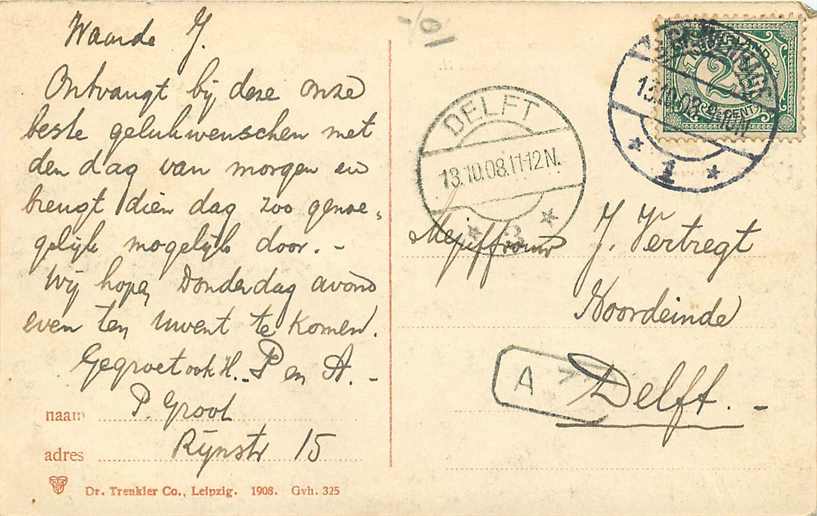 Waarde J.
Ontvangt bij deze onze
beste gelukwenschen met
den dag van morgen en
brengt dien dag zoo genoe-
gelijk mogelijk door. -
Wij hopen Donderdag avond
even ten Uwent te komen.
Gegroet ook H. P en A. -
naam P. Groot
adres Rijnstr 15
Dr. Trenkler Co., Leipzig. 1908. Gvh. 325
DELFT
13.10.08.11-12N.
2
13.10.08
1
Mejuffrouw J. Vertregt
Noordeinde
A
Delft. -